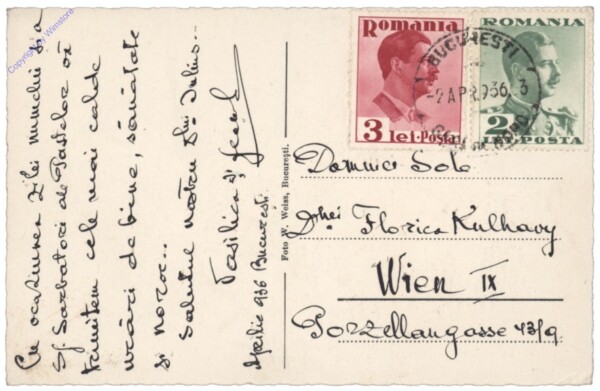 Copyright by Wimstore
Cu ocaziunea zilei numelui si a
Sf. Sarbatori ale Pastelor va
trimitem cele mai calde
urări de bine, sănătate
si noroc...
Salutul nostru Dlui Iulius...
Vasilica si
Aprilie 936 Bucuresti
Foto W. Weiss, Bucureşti.
Romania
3 lei-Posta
ROMANIA
2 LEI-POSTA
BUCUREŞTI
-9 APR. 936. 3
Domniei Sale
Dnei Florica Kulhavy
Wien IX
Porzellangasse 43/9